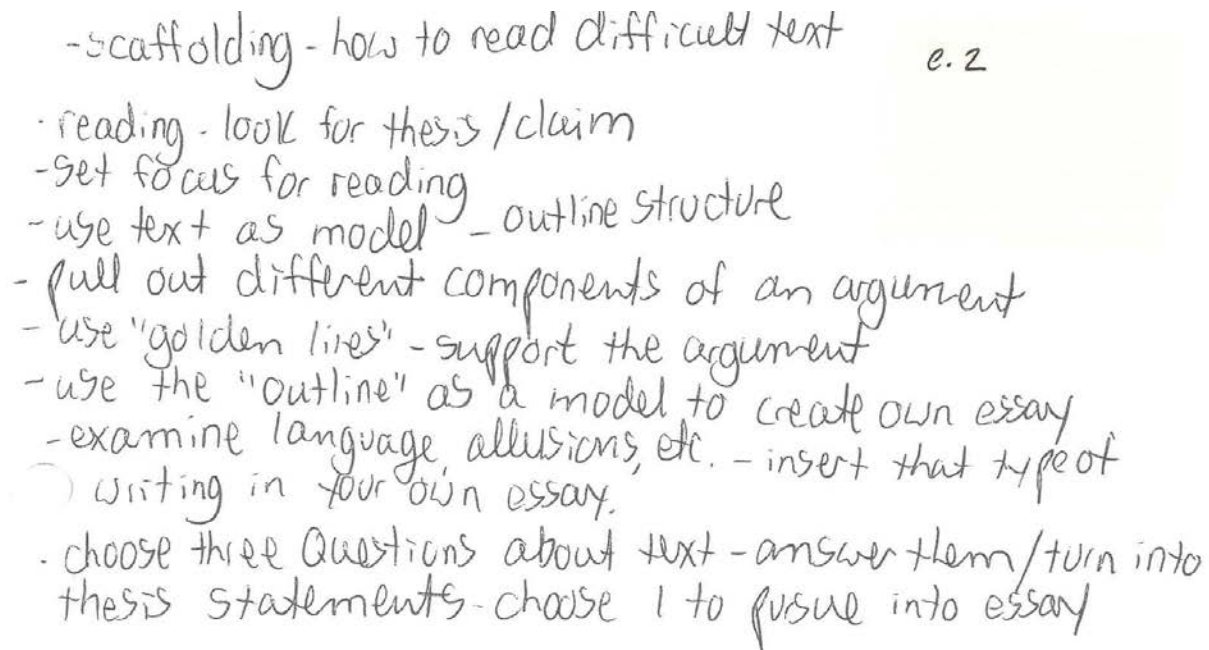 -scaffolding - how to read difficult text
e.2
· reading - look for thesis/claim
-set focus for reading
-use text as model - outline structure
- pull out different components of an argument
- use "golden lines" - support the argument
-use the "outline" as a model to create own essay
-examine language, allusions, etc. - insert that type of
writing in your own essay.
· choose three Questions about text - answer them/turn into
thesis statements - choose 1 to pusue into essay